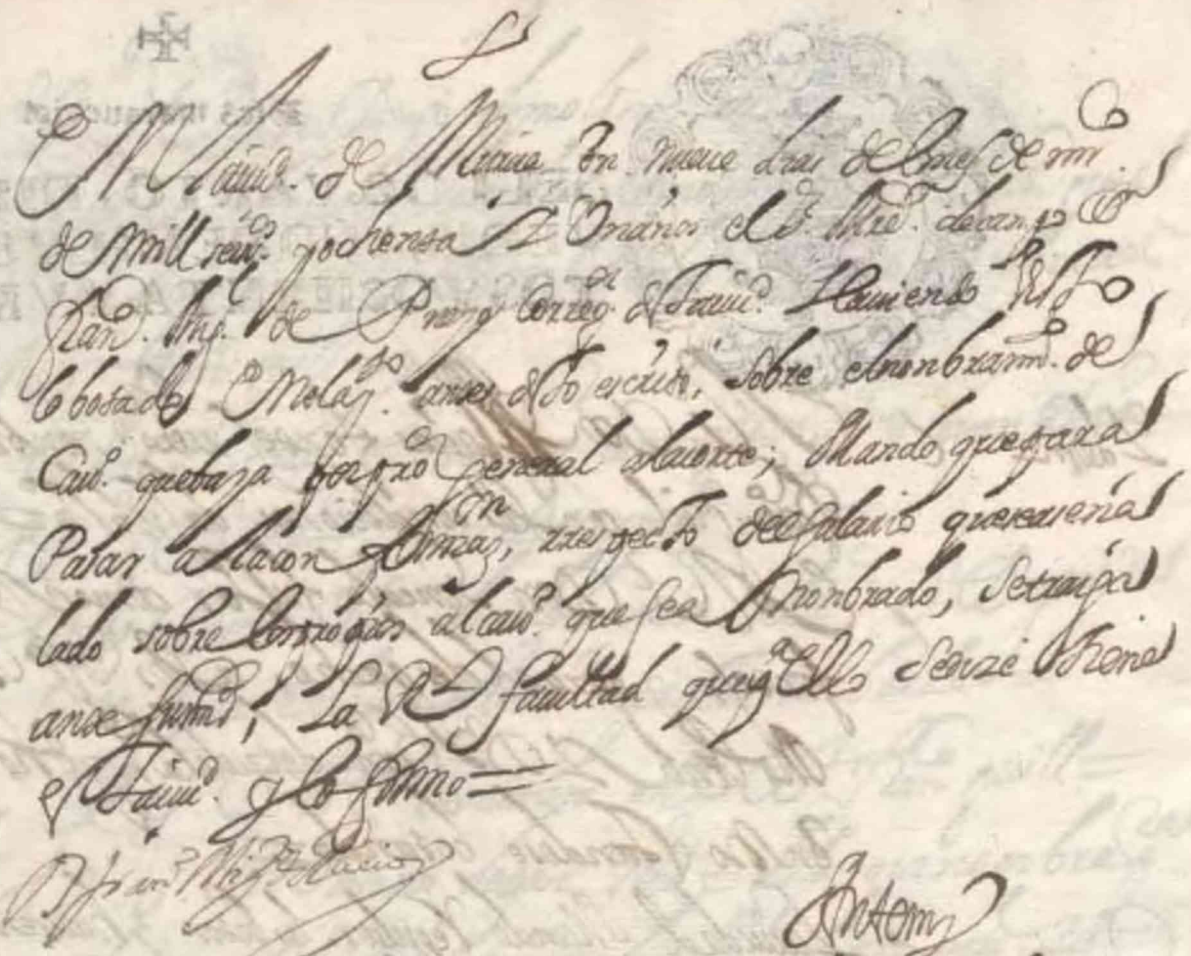 En la ciud. de Murcia en nueve dias del mes de nov.
de mill seisos. y ochenta y Un años el S. lizdo.
Fran. Mig. de Pueyo Correg.or dsta ciud. haviendo visto
lo botado En el aym.to antes dsto escrito, sobre el nonbram.to de
Cavo. que baya por pror. general a la corte; Mando que para
Pasar a la con firmaz.on, respecto del salario que se a seña
lado sobre los propios al cavo. que sea nonbrado, se traiga
ante su md, La Rl facultad que pa Ello se dize tiene
esta ciud. y lo firmo =
Antonio